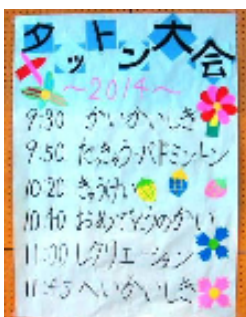 タットン大会
～2014～
9:30 かいかいしき
9:50 たっきゅう・バドミントン
10:20 きゅうけい
10:40 おめでとうのかい
11:00 レクリエーション
11:45 へいかいしき